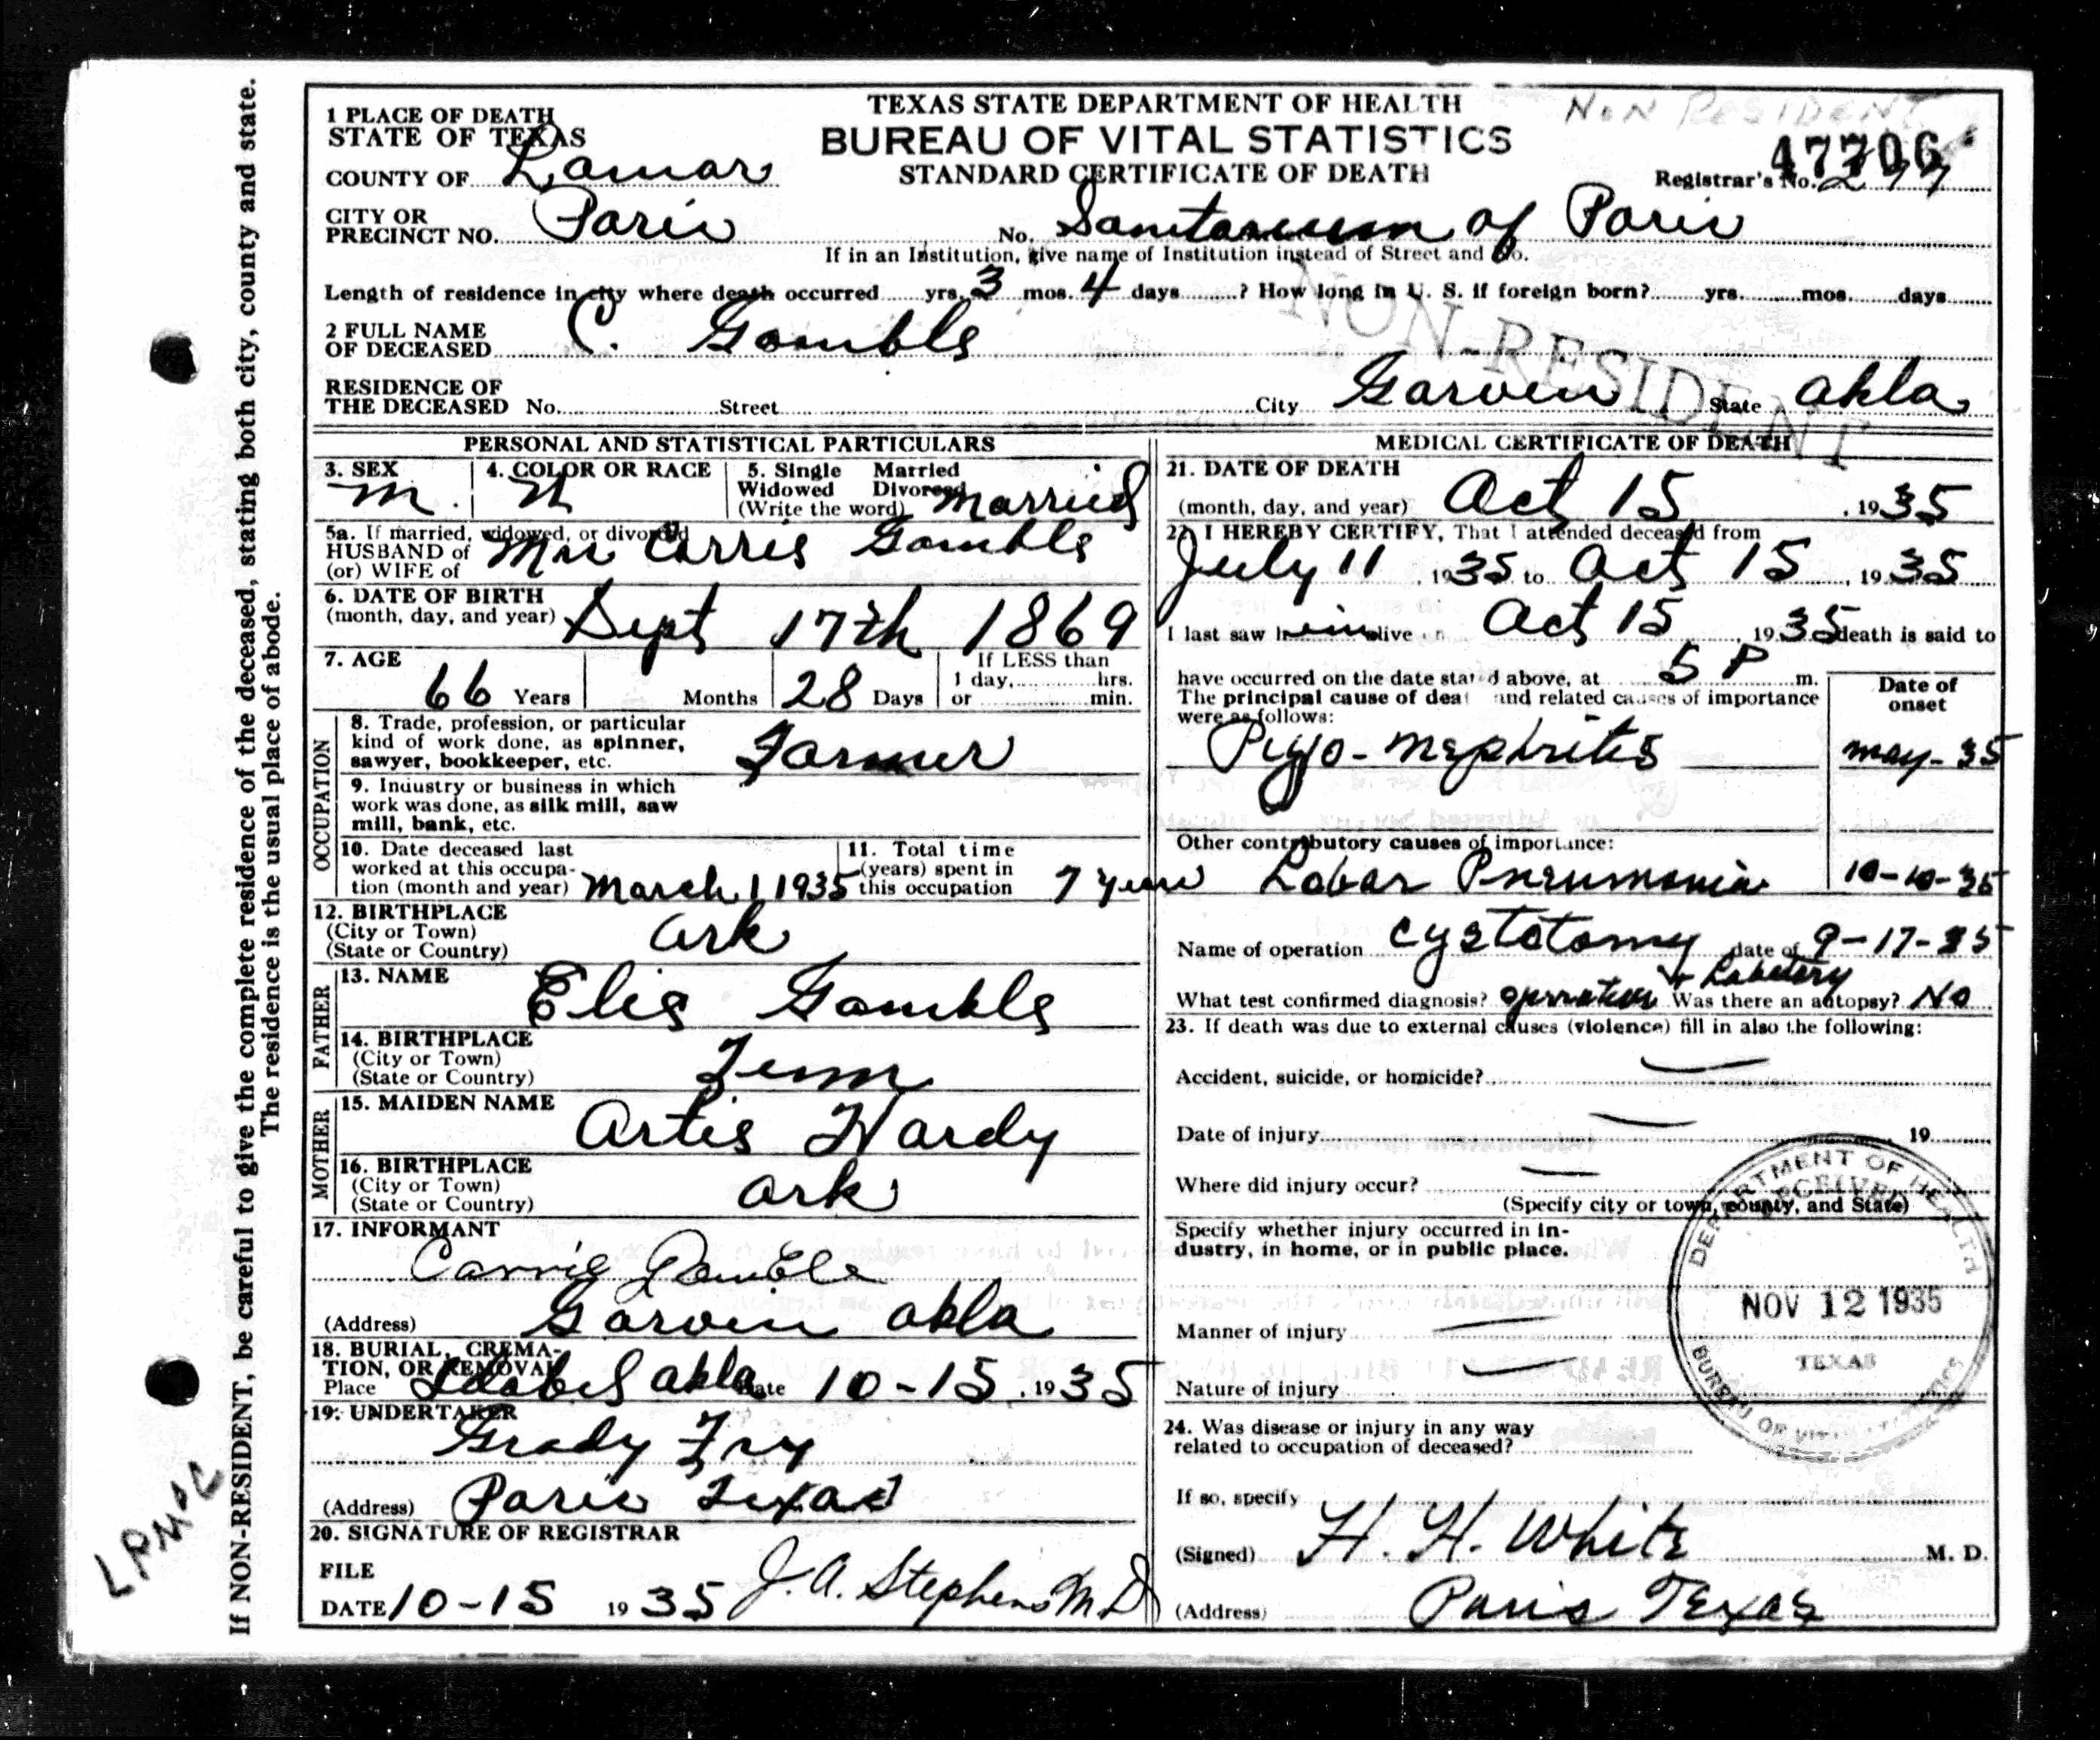 If NON-RESIDENT, be careful to give the complete residence of the deceased, stating both city, county and state.
The residence is the usual place of abode.
TEXAS STATE DEPARTMENT OF HEALTH
BUREAU OF VITAL STATISTICS
STANDARD CERTIFICATE OF DEATH
NON RESIDENT
47706
Registrar's No. 277
1 PLACE OF DEATH
STATE OF TEXAS
COUNTY OF Lamar
CITY OR
PRECINCT NO. Paris No. Sanitarium of Paris
If in an Institution, give name of Institution instead of Street and No.
Length of residence in city where death occurred yrs. 3 mos. 4 days ? How long in U. S. if foreign born? yrs. mos. days
2 FULL NAME
OF DECEASED C. Gamble
NON-RESIDENT
RESIDENCE OF
THE DECEASED No. Street City Garvin State Okla
PERSONAL AND STATISTICAL PARTICULARS
3. SEX
M.
4. COLOR OR RACE
5. Single Married
Widowed Divorced
(Write the word) Married
5a. If married, widowed, or divorced
HUSBAND of
(or) WIFE of Mrs Carrie Gamble
6. DATE OF BIRTH
(month, day, and year) Sept 17th 1869
7. AGE
66 Years Months 28 Days
If LESS than
1 day, hrs.
or min.
OCCUPATION
8. Trade, profession, or particular
kind of work done, as spinner,
sawyer, bookkeeper, etc. Farmer
9. Industry or business in which
work was done, as silk mill, saw
mill, bank, etc.
10. Date deceased last
worked at this occupa-
tion (month and year) March 1 1935
11. Total time
(years) spent in
this occupation 7 years
12. BIRTHPLACE
(City or Town)
(State or Country) Ark
FATHER
13. NAME Elis Gamble
14. BIRTHPLACE
(City or Town)
(State or Country) Tenn
MOTHER
15. MAIDEN NAME Artis Hardy
16. BIRTHPLACE
(City or Town)
(State or Country) Ark
17. INFORMANT
Carrie Gamble
(Address) Garvin Okla
18. BURIAL, CREMA-
TION, OR REMOVAL
Place Idabel Okla Date 10-15, 1935
19. UNDERTAKER
Grady Fry
(Address) Paris Texas
20. SIGNATURE OF REGISTRAR
FILE
DATE 10-15 1935 J. A. Stephens M D
MEDICAL CERTIFICATE OF DEATH
21. DATE OF DEATH
(month, day, and year) Oct 15, 1935
22. I HEREBY CERTIFY, That I attended deceased from
July 11, 1935 to Oct 15, 1935
I last saw him alive on Oct 15, 1935 death is said to
have occurred on the date stated above, at 5 P m.
The principal cause of death and related causes of importance
were as follows:
Date of
onset
Pyo-nephritis may-35
Other contributory causes of importance:
Lobar Pneumonia 10-10-35
Name of operation Cystotomy date of 9-17-35
What test confirmed diagnosis? Operation + Labatory Was there an autopsy? No
23. If death was due to external causes (violence) fill in also the following:
Accident, suicide, or homicide?
Date of injury 19
Where did injury occur?
(Specify city or town, county, and State)
Specify whether injury occurred in in-
dustry, in home, or in public place.
Manner of injury
Nature of injury
24. Was disease or injury in any way
related to occupation of deceased?
If so, specify
(Signed) H. H. White M. D.
(Address) Paris Texas
DEPARTMENT OF HEALTH
RECEIVED
NOV 12 1935
TEXAS
BUREAU OF VITAL STATISTICS